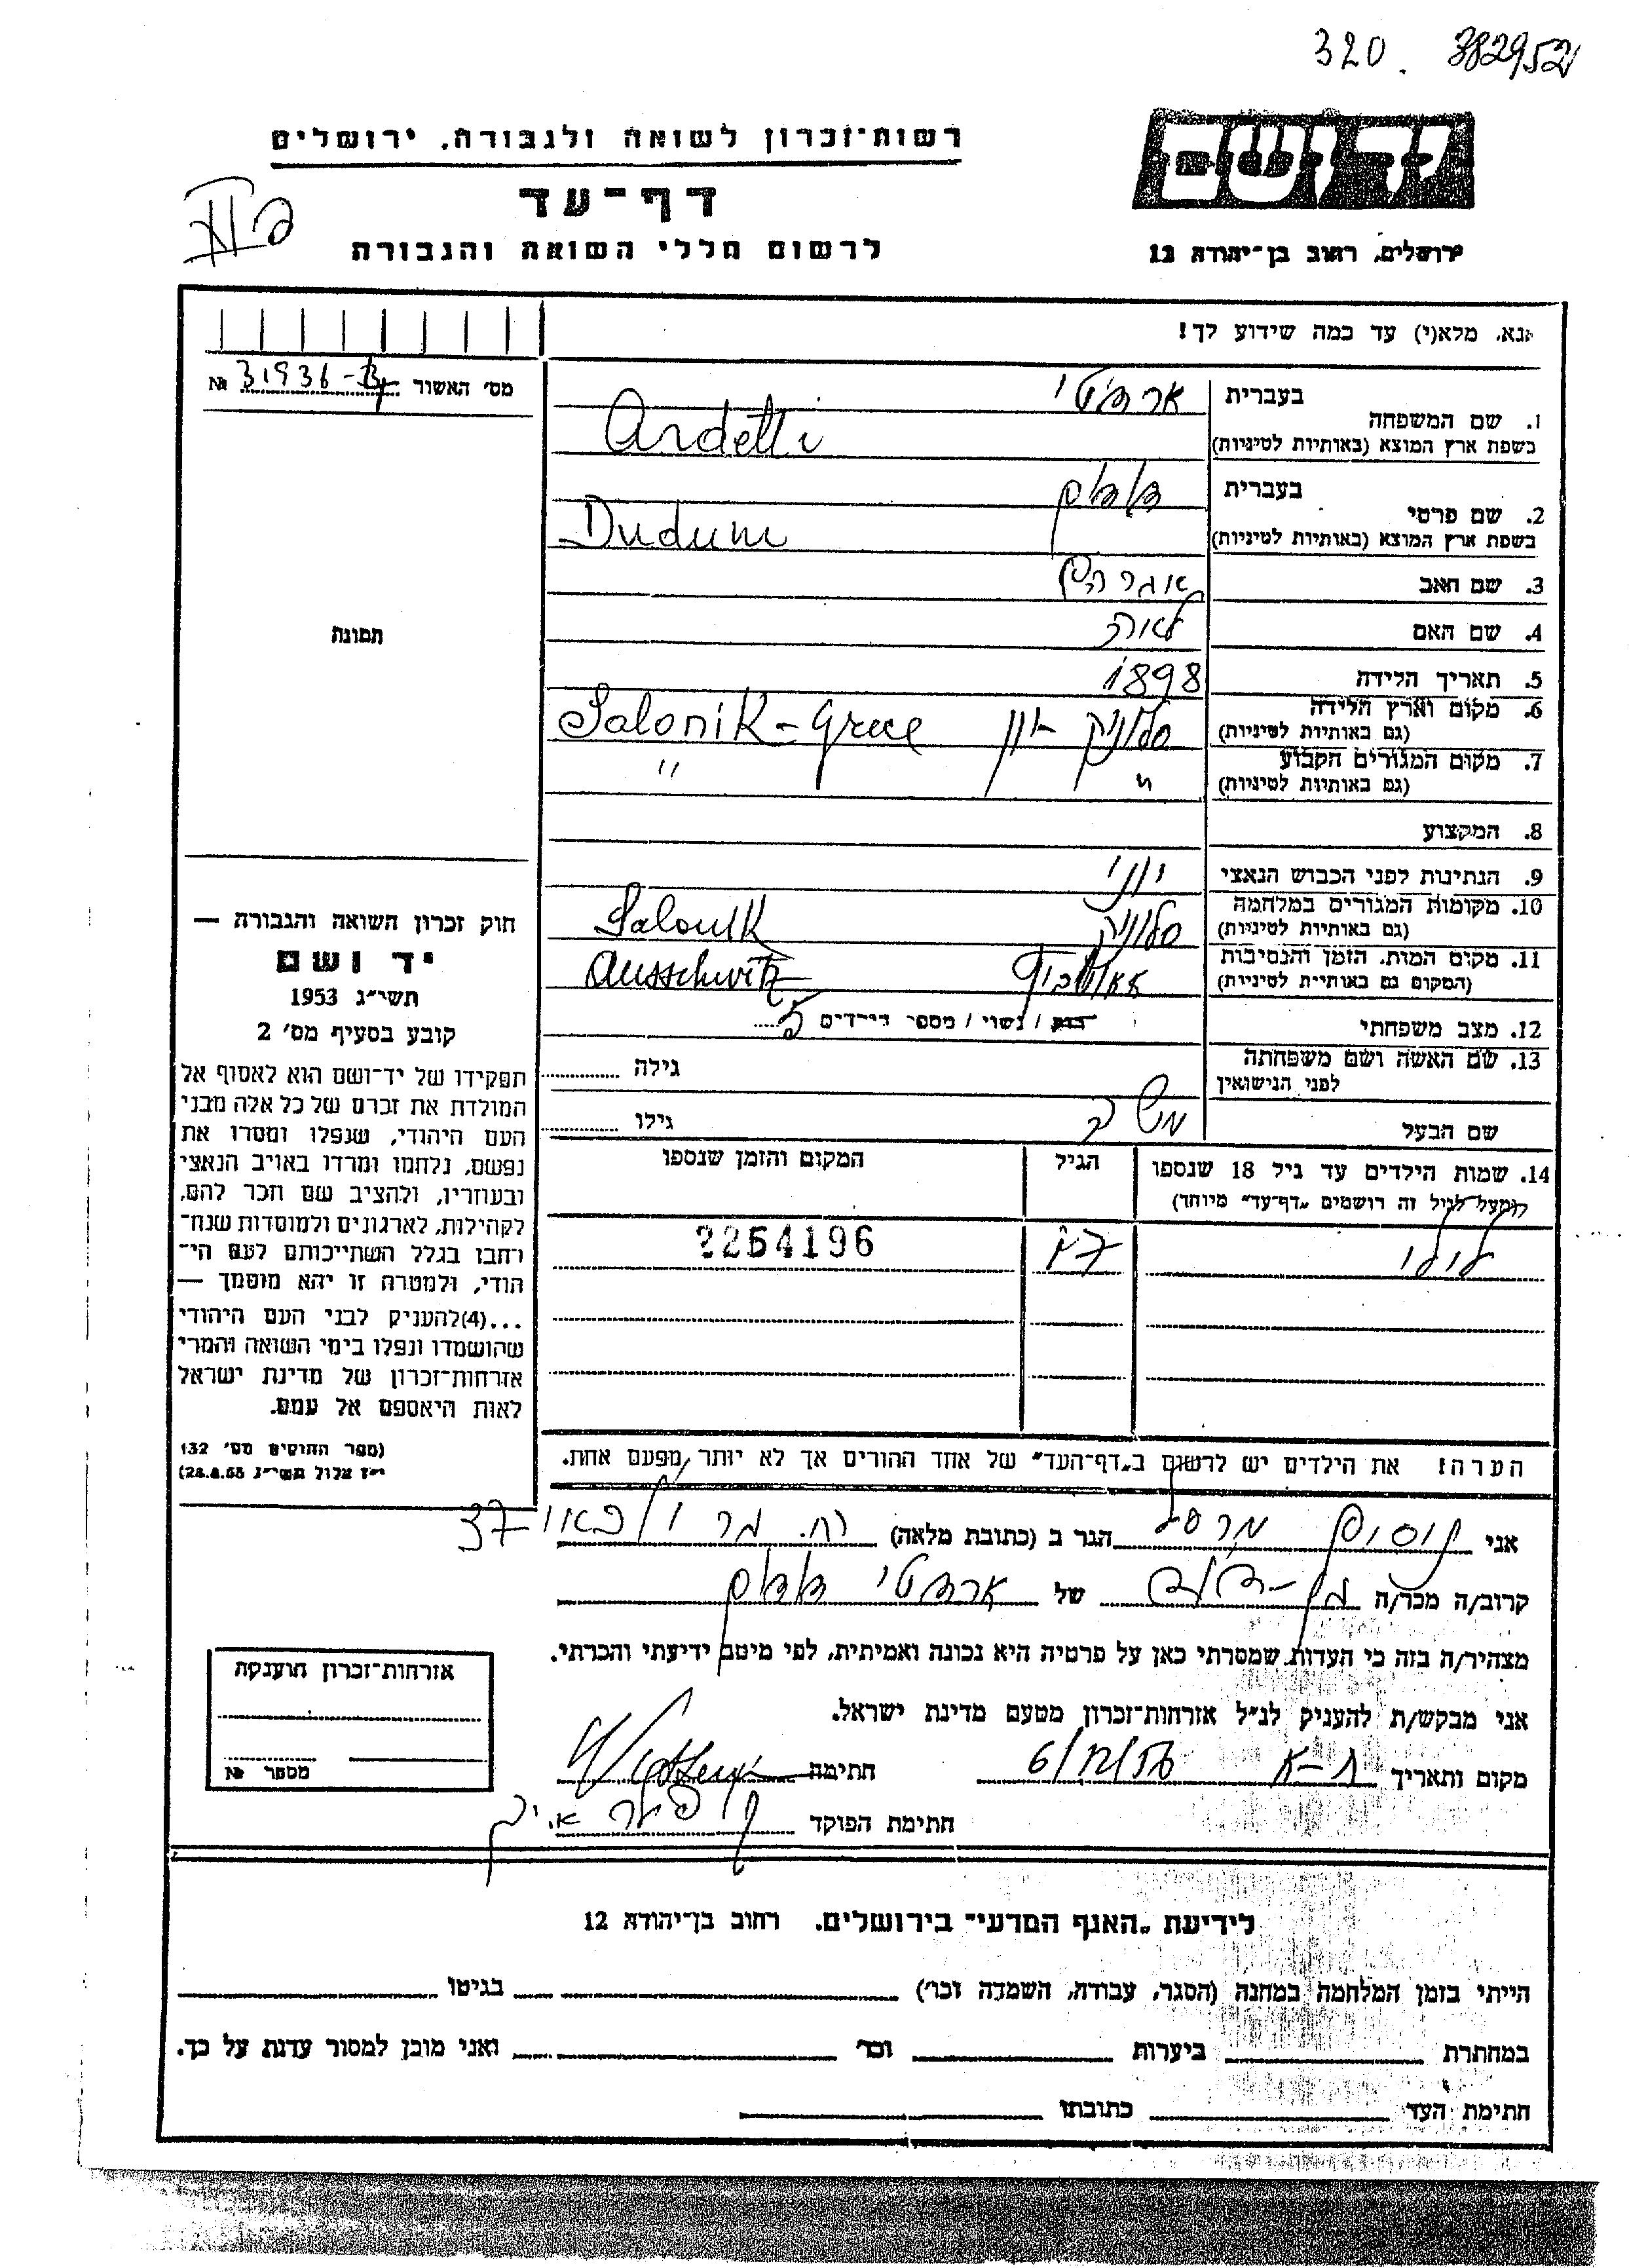 320. 382952
רשות־זכרון לשואה ולגבורה, ירושלים
יד ושם
דף־עד
לרשום חללי השואה והגבורה
ירושלים, רחוב בן־יהודה 12
אנא, מלא(י) עד כמה שידוע לך!
מס׳ האשור № 31936
1. שם המשפחה
בעברית ארדיטי
בשפת ארץ המוצא (באותיות לטיניות) Ardetti
2. שם פרטי
בעברית דודום
בשפת ארץ המוצא (באותיות לטיניות) Dudum
3. שם האב אברהם
4. שם האם לאורה
5. תאריך הלידה 1898
6. מקום וארץ הלידה
(גם באותיות לטיניות) סלוניק - יון Salonik - Grece
7. מקום המגורים הקבוע
(גם באותיות לטיניות) " "
8. המקצוע
9. הנתינות לפני הכבוש הנאצי יוני
10. מקומות המגורים במלחמה
(גם באותיות לטיניות) סלוניק Salonik
11. מקום המות, הזמן והנסיבות
(המקום גם באותיות לטיניות) אאושביץ Ausschwitz
12. מצב משפחתי רווק / נשוי / מספר הילדים 5
13. שם האשה ושם משפחתה
לפני הנישואין גילה
שם הבעל משה גילו
14. שמות הילדים עד גיל 18 שנספו
(למעל לגיל זה רושמים „דף־עד״ מיוחד)
הגיל
המקום והזמן שנספו
לילי 2254196
הערה! את הילדים יש לרשום ב„דף־העד״ של אחד ההורים אך לא יותר מפעם אחת.
תמונה
חוק זכרון השואה והגבורה —
יד ושם
תשי״ג 1953
קובע בסעיף מס׳ 2
תפקידו של יד־ושם הוא לאסוף אל
המולדת את זכרם של כל אלה מבני
העם היהודי, שנפלו ומסרו את
נפשם, נלחמו ומרדו באויב הנאצי
ובעוזריו, ולהציב שם וזכר להם,
לקהילות, לארגונים ולמוסדות שנח־
רבו בגלל השתייכותם לעם הי־
הודי, ולמטרה זו יהא מוסמך —
...(4)להעניק לבני העם היהודי
שהושמדו ונפלו בימי השואה והמרי
אזרחות־זכרון של מדינת ישראל
לאות היאספם אל עמם.
(ספר החוקים מס׳ 132
י״ז אלול תשי״ג 28.8.53)
אני מרסל הגר ב (כתובת מלאה) רח. 37
קרוב/ה מכר/ה בן-דוד של ארדיטי דודום
מצהיר/ה בזה כי העדות שמסרתי כאן על פרטיה היא נכונה ואמיתית, לפי מיטב ידיעתי והכרתי.
אני מבקש/ת להעניק לנ״ל אזרחות־זכרון מטעם מדינת ישראל.
מקום ותאריך ת-א 6/ חתימה
חתימת הפוקד
אזרחות־זכרון הוענקה
מספר №
לידיעת „האגף המדעי״ בירושלים. רחוב בן־יהודה 12
הייתי בזמן המלחמה במחנה (הסגר, עבודה, השמדה וכו׳) בגיטו
במחתרת ביערות וכו׳ ואני מוכן למסור עדות על כך.
חתימת העד כתובתו